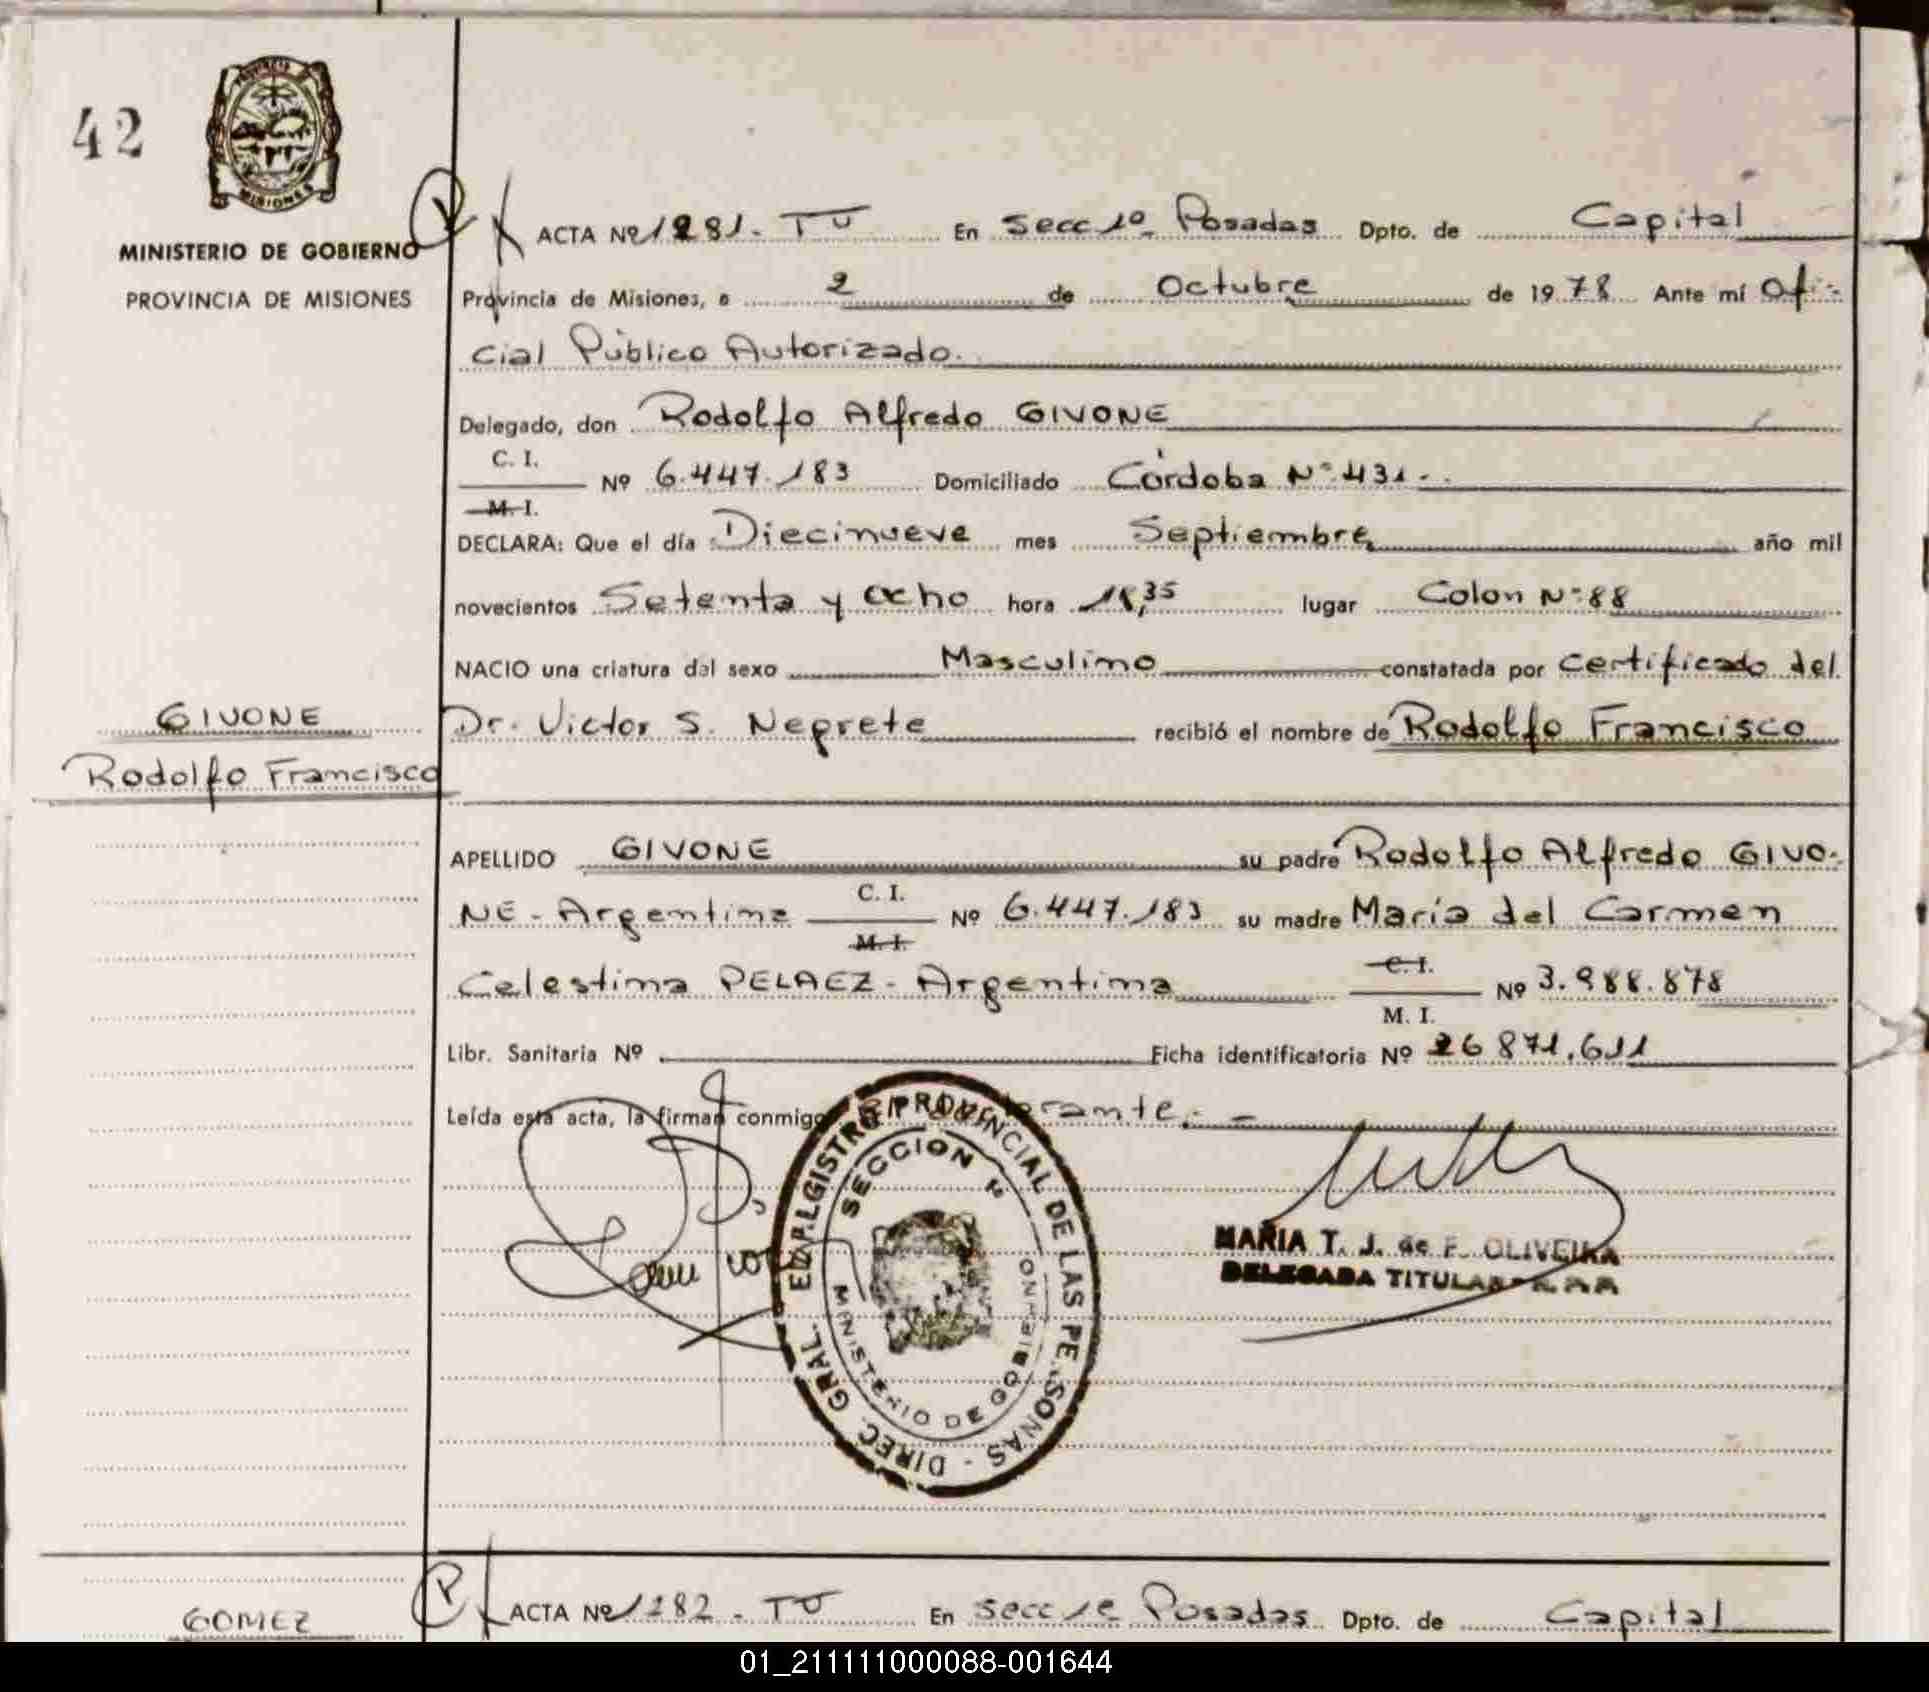 42
PROVINCIA DE
MISIONES
MINISTERIO DE GOBIERNO
PROVINCIA DE MISIONES
ACTA Nº 1281. TU En Secc 1º Posadas Dpto. de Capital
Provincia de Misiones, a 2 de Octubre de 1978 Ante mí Ofi-
cial Público Autorizado.
Delegado, don Rodolfo Alfredo GIVONE
C. I.
Nº 6.447.183 Domiciliado Córdoba Nº 431.
M. I.
DECLARA: Que el día Diecinueve mes Septiembre año mil
novecientos Setenta y ocho hora 18,35 lugar Colon Nº 88
NACIO una criatura del sexo Masculino constatada por certificado del
Dr. Victor S. Negrete recibió el nombre de Rodolfo Francisco
GIVONE
Rodolfo Francisco
APELLIDO GIVONE su padre Rodolfo Alfredo GIVO-
C. I.
NE - Argentina Nº 6.447.183 su madre María del Carmen
M. I.
Celestina PELAEZ - Argentina C. I. Nº 3.988.878
M. I.
Libr. Sanitaria Nº Ficha identificatoria Nº 26871.611
Leída esta acta, la firman conmigo
DIREC. GRAL. DEL REGISTRO PROVINCIAL DE LAS PERSONAS
SECCION
MINISTERIO DE GOBIERNO
MARIA T. J. de F. OLIVEIRA
DELEGADA TITULAR
GOMEZ
ACTA Nº 1282 - TU En Secc 1º Posadas Dpto. de Capital
01_211111000088-001644